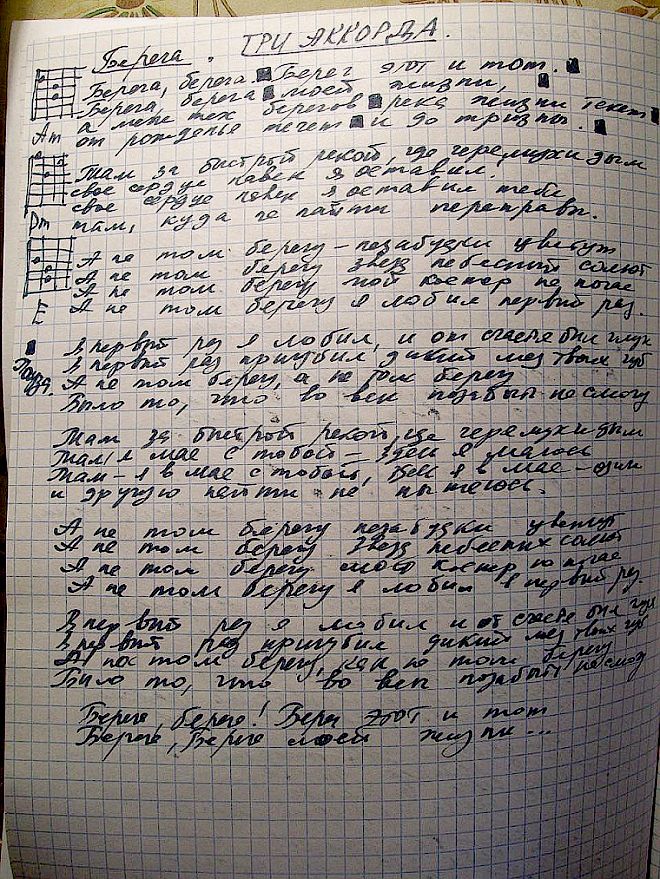 Берега. ТРИ АККОРДА.
Берега, берега Берег этот и тот.
Берега, берега моей жизни,
а меж тех берегов река жизни течет
от рожденья течет и до тризны.
Am
Там за быстрой рекой, где черемухи дым
свое сердце навек я оставил.
свое сердце навек я оставил тебе
там, куда не найти переправы.
Dm
А на том берегу - незабудки цветут
А на том берегу звезд небесный салют
А на том берегу мой костер не погас
А на том берегу я любил первый раз.
E
В первый раз я любил, и от счастья был глух
В первый раз пригубил дикий мед твоих губ
Пауза. А на том берегу, а на том берегу
Было то, что во век позабыть не смогу
Там за быстрой рекой, где черемухи дым
Там я в мае с тобой - здесь я маюсь
Там - я в мае с тобой, здесь я в мае - один
и другую найти не пытаюсь.
А на том берегу незабудки цветут
А на том берегу звезд небесных салют
А на том берегу мой костер не погас
А на том берегу я любил в первый раз.
В первый раз я любил и от счастья был глух
В первый раз пригубил дикий мед твоих губ
А на том берегу, на том берегу
Было то, что во век позабыть не смогу
Берега, берега! Берег этот и тот
Берега, Берега моей жизни...